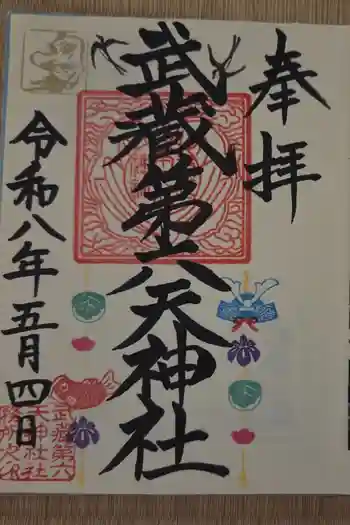 奉拝
武蔵第六天神社
令和八年五月四日
武蔵第六
天神社社